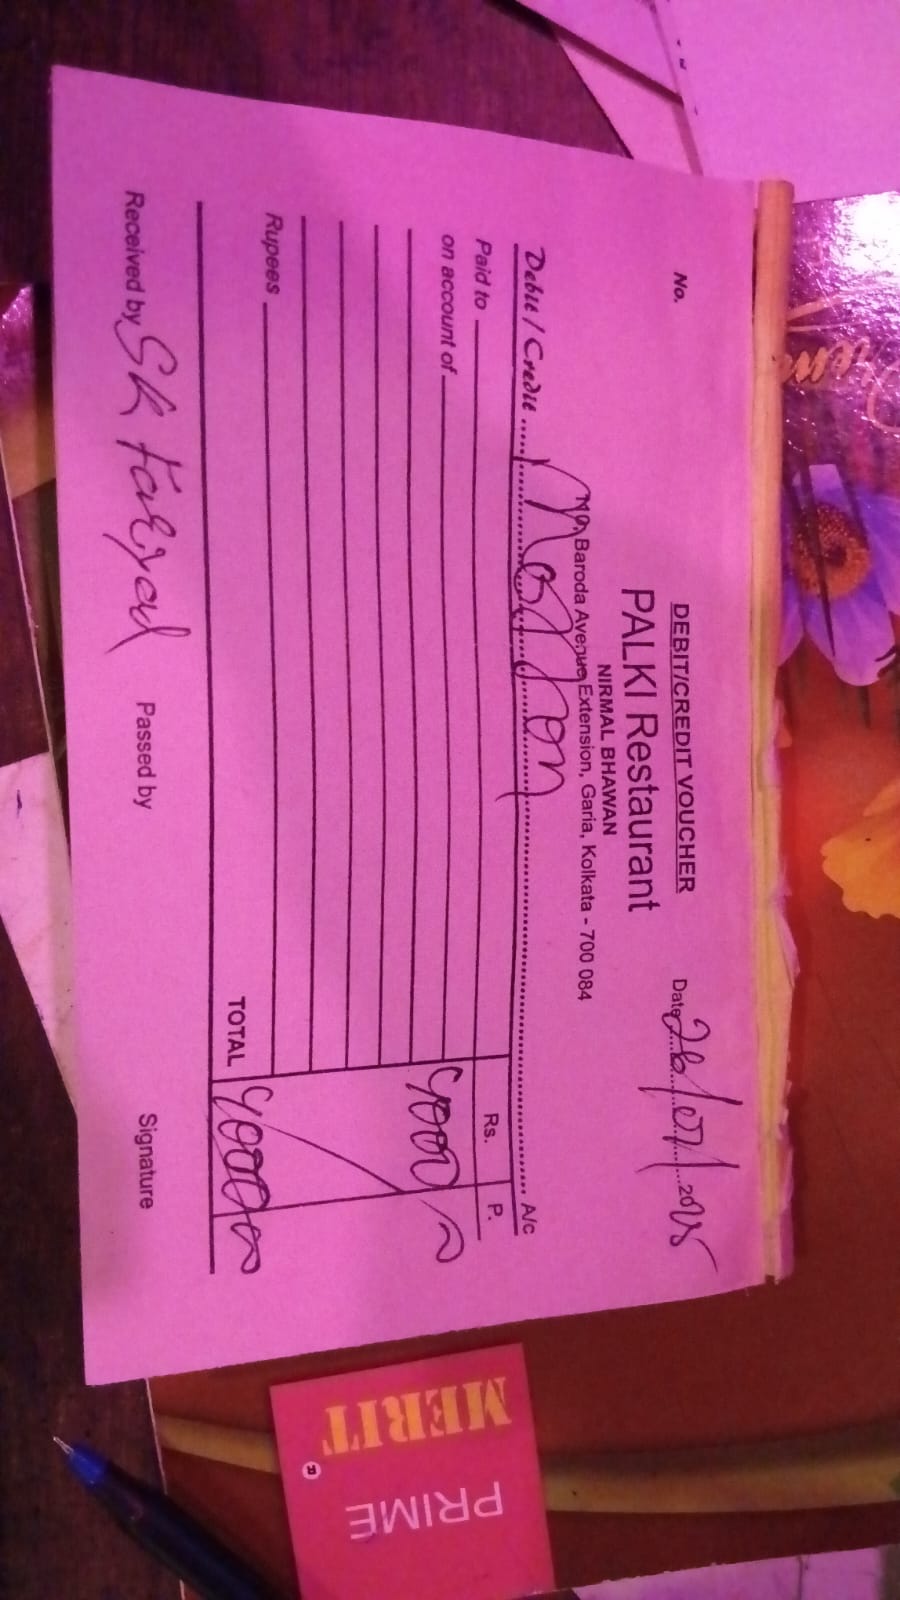 DEBIT/CREDIT VOUCHER
No.
Date 26/07/2025
PALKI Restaurant
NIRMAL BHAWAN
Baroda Avenue Extension, Garia, Kolkata - 700 084
Debit / Credit Motton A/c
Paid to
Rs. P.
on account of
Rupees
TOTAL
Received by Sk
Passed by
Signature
MERIT
PRIME